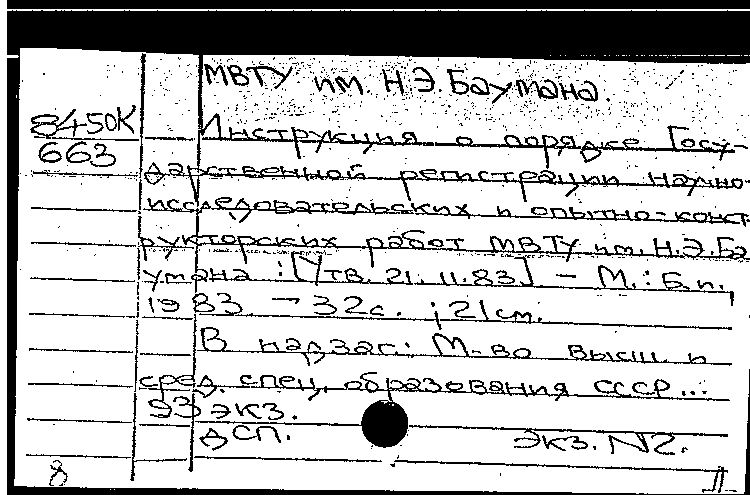 МВТУ им. Н.Э.Баумана.
8450К
663
Инструкция о порядке Госу-
дарственной регистрации научно-
исследовательских и опытно-конст
рукторских работ МВТУ им.Н.Э.Ба
умана :[Утв. 21.11.83] – М.: Б.и.,
1983 – 32с. ; 21см.
В надзаг.: М-во высш и
сред. спец. образования СССР...
93 экз.
ДСП. Экз. N2.
8